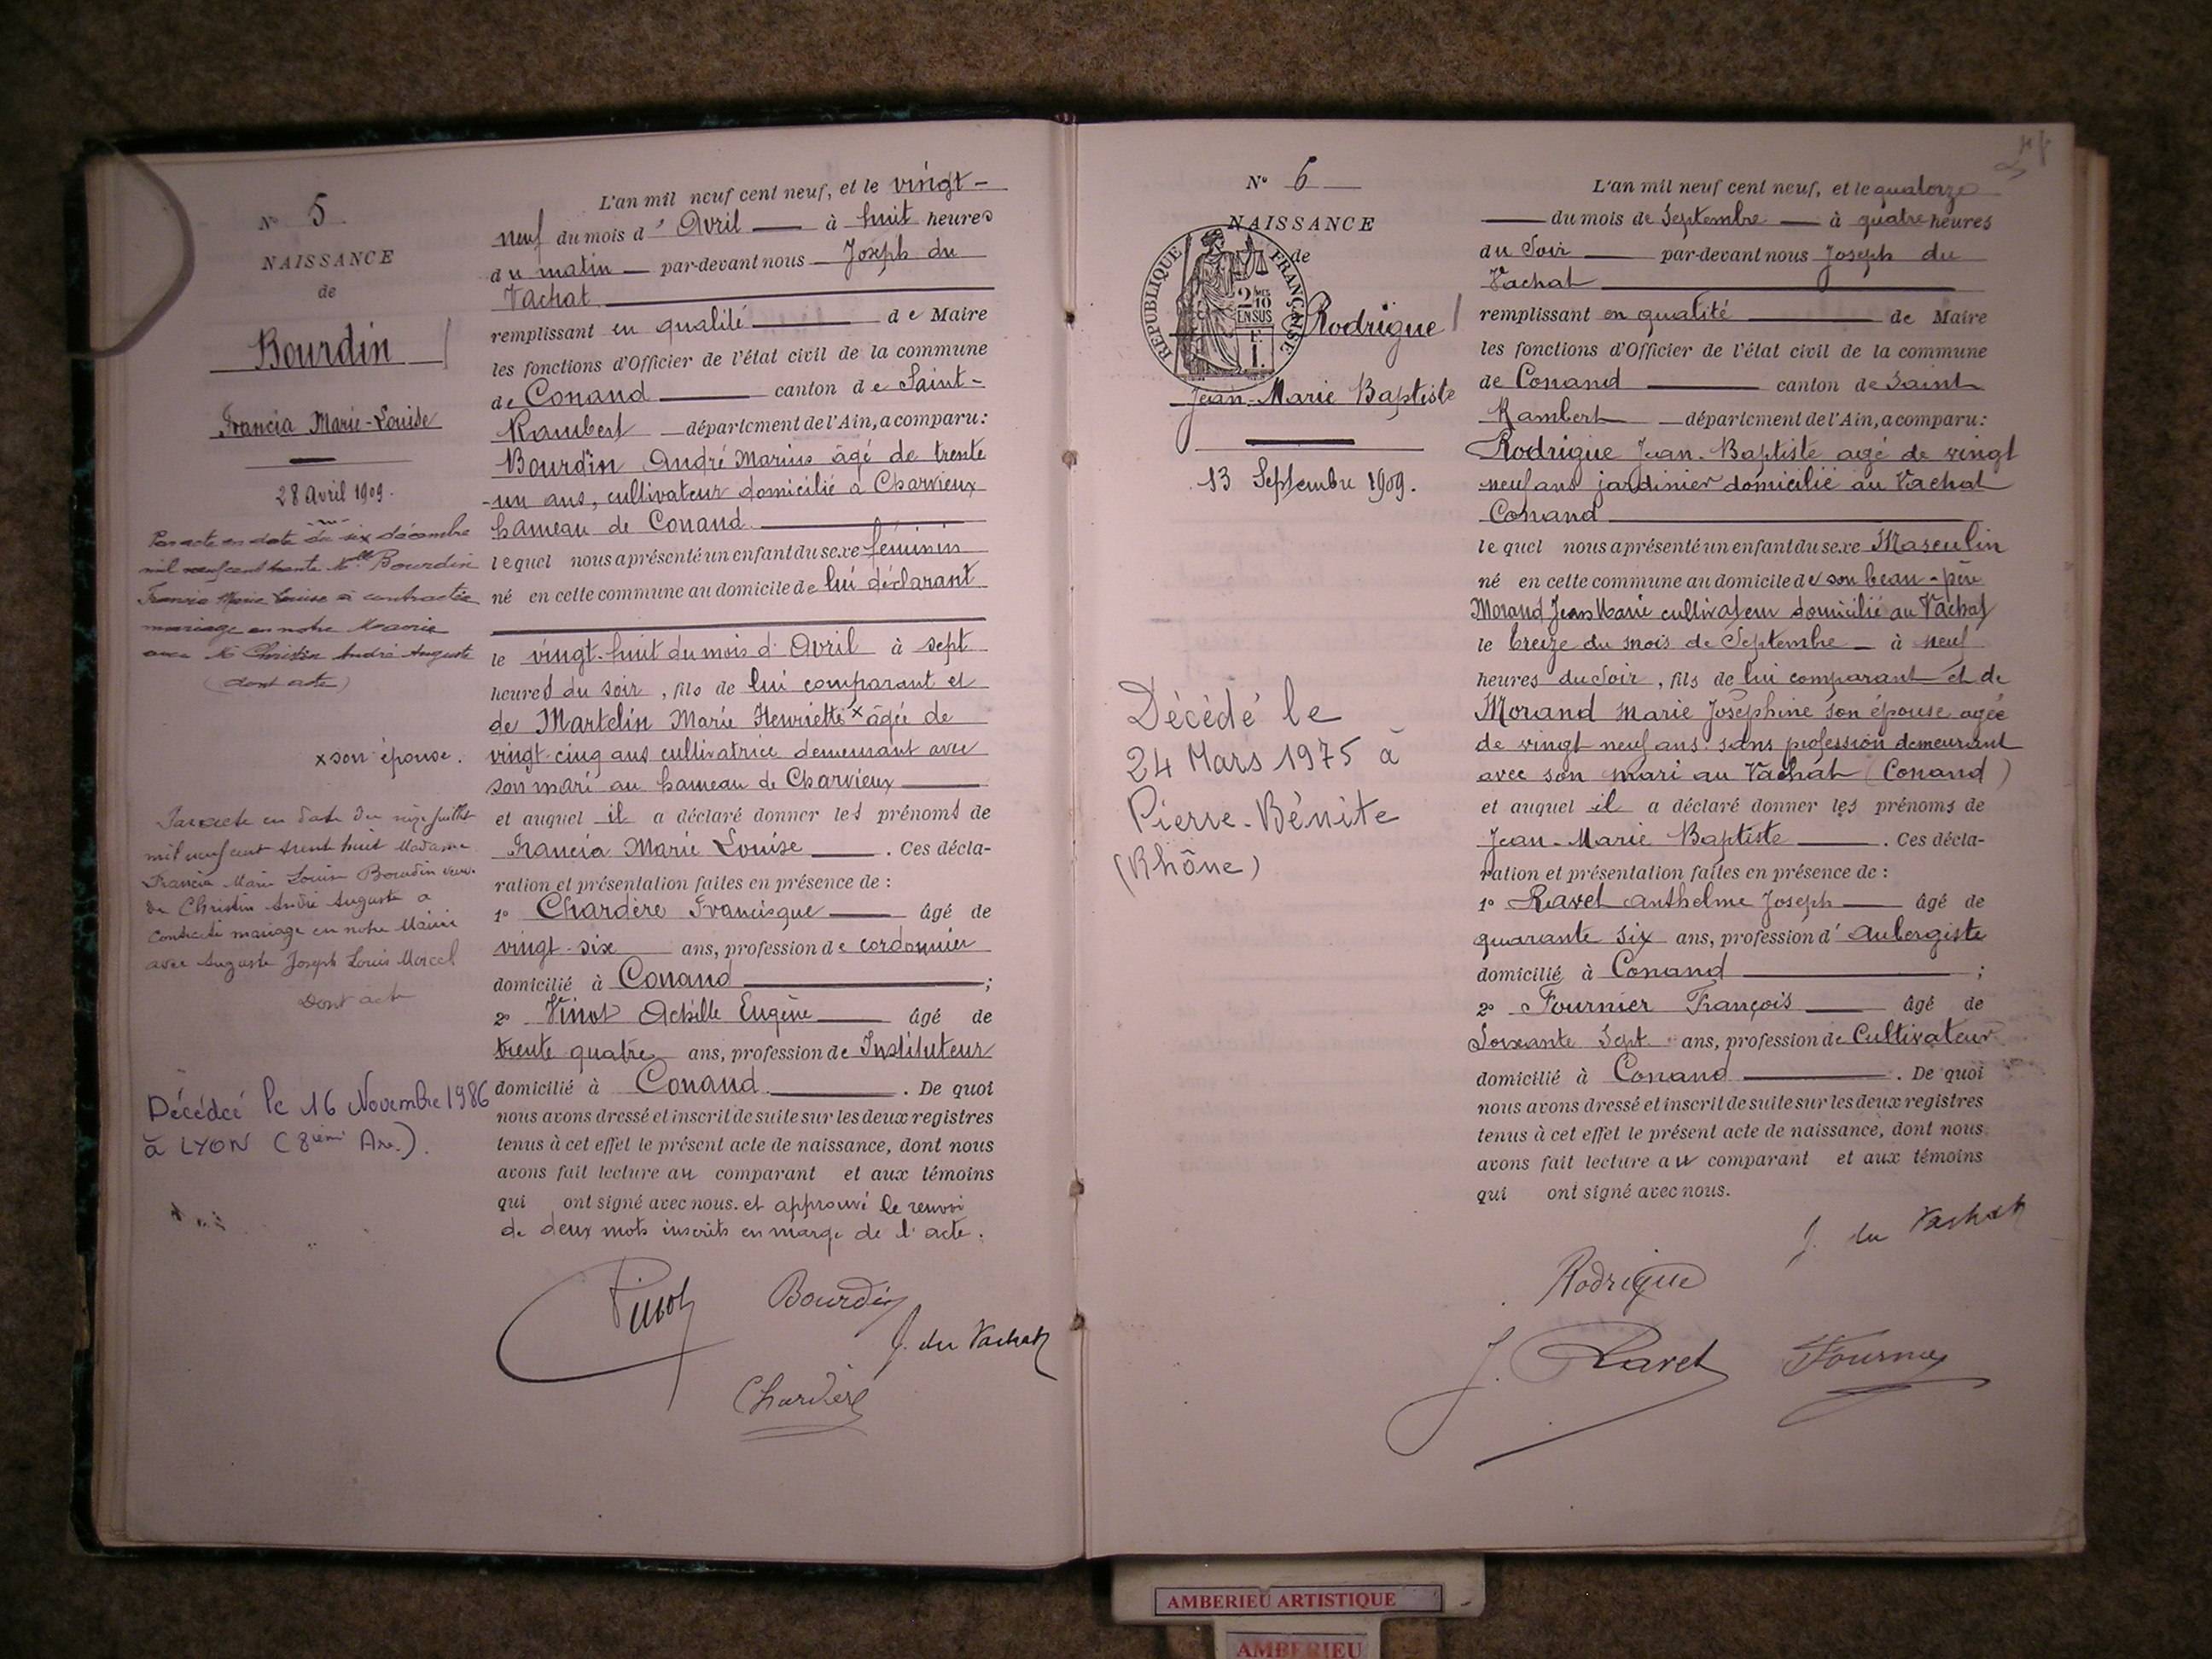 N° 5
NAISSANCE
de
Bourdin
Francia Marie-Louise
28 Avril 1909.
Par acte en date du six décembre
mil neuf cent trente Mlle Bourdin
Francia Marie Louise a contracté
mariage en notre Mairie
avec Mr Christin André Auguste
(dont acte)
x son épouse.
Par acte en date du juillet
mil neuf cent trente huit Madame
Francia Marie Louise Bourdin veuve
de Christin André Auguste a
contracté mariage en notre Mairie
avec Auguste Joseph Louis Marcel
Dont acte
Décédée le 16 Novembre 1986
à LYON (8ième Arr.).
L'an mil neuf cent neuf, et le vingt-
neuf du mois d'Avril à huit heures
du matin par-devant nous Joseph du
Vachat
remplissant en qualité de Maire
les fonctions d'Officier de l'état civil de la commune
de Conand canton de Saint-
Rambert département de l'Ain, a comparu:
Bourdin André Marius âgé de trente
-un ans, cultivateur domicilié à Charvieux
hameau de Conand
lequel nous a présenté un enfant du sexe féminin
né en cette commune au domicile de lui déclarant
le vingt-huit du mois d'Avril à sept
heures du soir, fils de lui comparant et
de Martelin Marie Henriette x âgée de
vingt cinq ans cultivatrice demeurant avec
son mari au hameau de Charvieux
et auquel il a déclaré donner les prénoms de
Francia Marie Louise. Ces décla-
ration et présentation faites en présence de :
1° Chardère Francisque âgé de
vingt-six ans, profession de cordonnier
domicilié à Conand ;
2° Vinot Achille Eugène âgé de
trente quatre ans, profession de Instituteur
domicilié à Conand. De quoi
nous avons dressé et inscrit de suite sur les deux registres
tenus à cet effet le présent acte de naissance, dont nous
avons fait lecture au comparant et aux témoins
qui ont signé avec nous. et approuvé le renvoi
de deux mots inscrits en marge de l'acte.
Vinot Bourdin
J. du Vachat
Chardère
N° 6
NAISSANCE
de
RÉPUBLIQUE FRANÇAISE
2/10 EN SUS
Rodrigue
Jean-Marie Baptiste
13 Septembre 1909.
Décédé le
24 Mars 1975 à
Pierre-Bénite
(Rhône)
L'an mil neuf cent neuf, et le quatorze
du mois de Septembre à quatre heures
du Soir par-devant nous Joseph du
Vachat
remplissant en qualité de Maire
les fonctions d'Officier de l'état civil de la commune
de Conand canton de Saint
Rambert département de l'Ain, a comparu:
Rodrigue Jean-Baptiste agé de vingt
neuf ans jardinier domicilié au Vachat
Conand
lequel nous a présenté un enfant du sexe Masculin
né en cette commune au domicile de son beau-père
Morand Jean Marie cultivateur domicilié au Vachat
le treize du mois de Septembre à neuf
heures du Soir, fils de lui comparant et de
Morand Marie Joséphine son épouse agée
de vingt neuf ans sans profession demeurant
avec son mari au Vachat (Conand)
et auquel il a déclaré donner les prénoms de
Jean-Marie Baptiste. Ces décla-
ration et présentation faites en présence de :
1° Ravet Anthelme Joseph âgé de
quarante six ans, profession d'Aubergiste
domicilié à Conand ;
2° Fournier François âgé de
Soixante Sept ans, profession de Cultivateur
domicilié à Conand. De quoi
nous avons dressé et inscrit de suite sur les deux registres
tenus à cet effet le présent acte de naissance, dont nous
avons fait lecture au comparant et aux témoins
qui ont signé avec nous.
J. du Vachat
Rodrigue
J. Ravet Fournier
AMBERIEU ARTISTIQUE
AMBERIEU